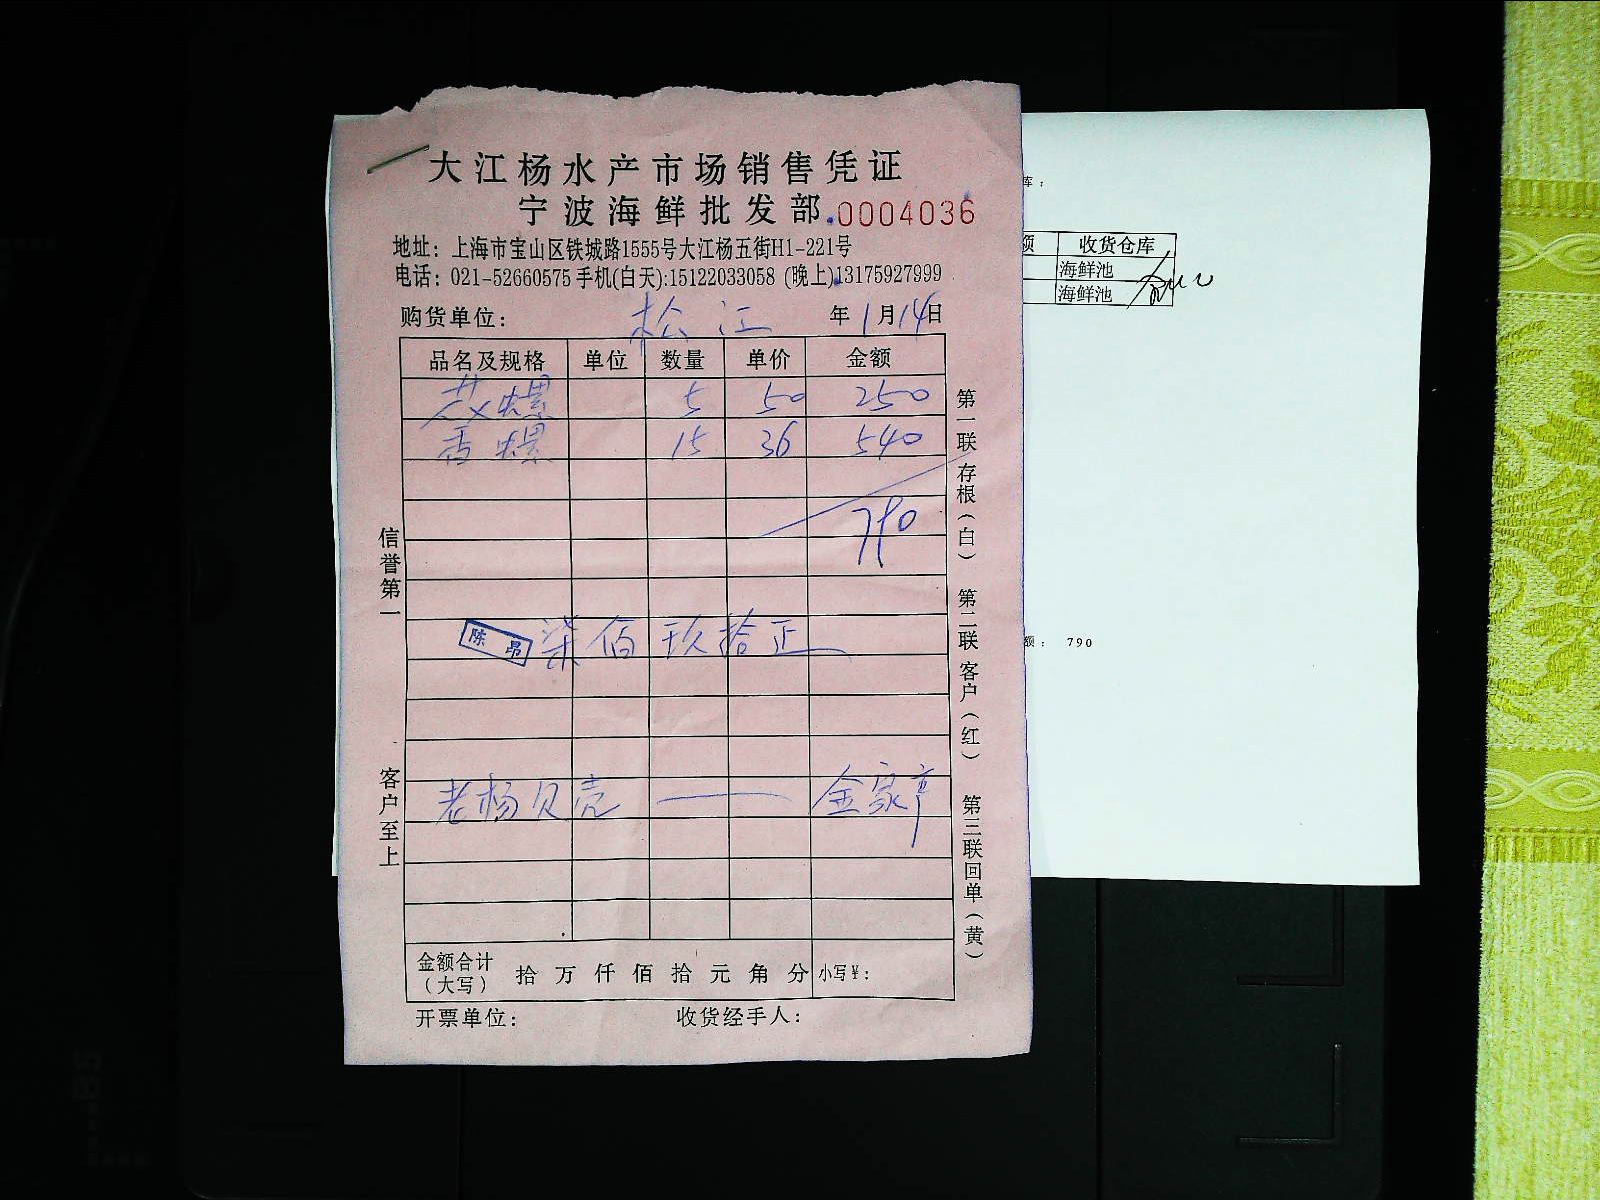 大江杨水产市场销售凭证
宁波海鲜批发部 0004036
地址：上海市宝山区铁城路1555号大江杨五街H1-221号
电话：021-52660575 手机(白天):15122033058 (晚上)13175927999
购货单位： 松江 年1月14日
品名及规格 单位 数量 单价 金额
螺 5 50 250
香螺 15 36 540
790
陈昂 柒佰玖拾正
老杨贝壳 —— 金家亭
金额合计（大写） 拾 万 仟 佰 拾 元 角 分 小写¥：
开票单位： 收货经手人：
信誉第一
客户至上
第一联存根（白） 第二联客户（红） 第三联回单（黄）
库：
额 收货仓库
海鲜池
海鲜池
额： 790